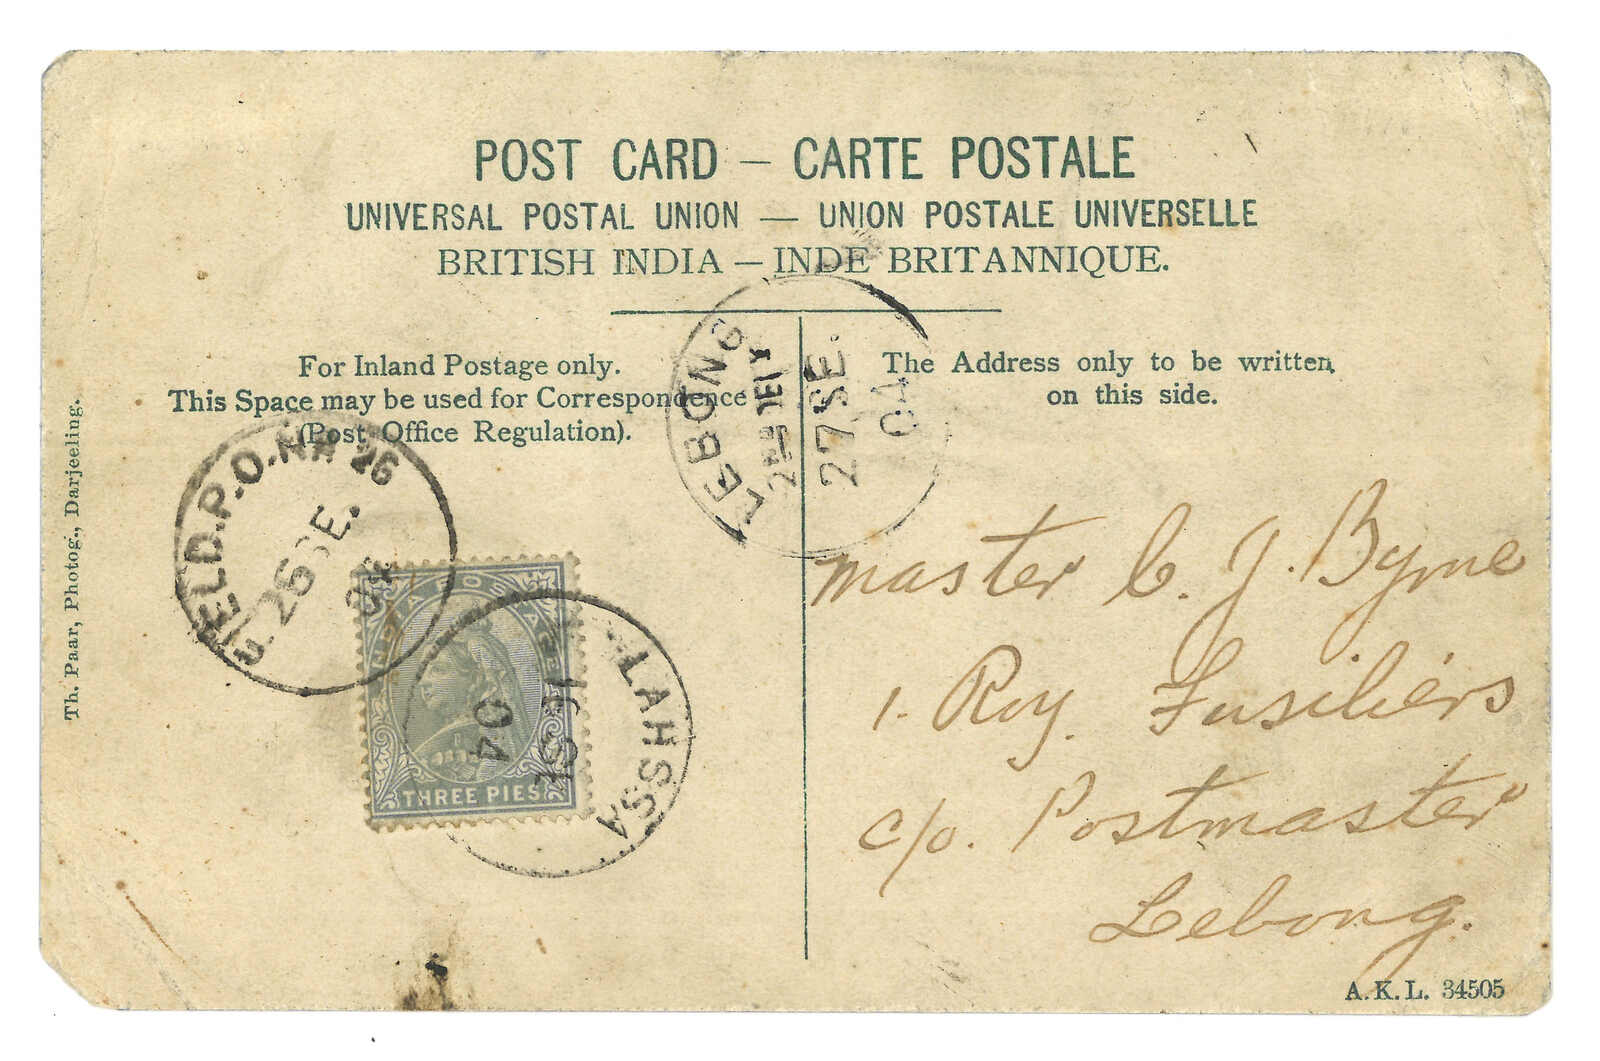 POST CARD – CARTE POSTALE
UNIVERSAL POSTAL UNION — UNION POSTALE UNIVERSELLE
BRITISH INDIA — INDE BRITANNIQUE.
For Inland Postage only.
This Space may be used for Correspondence
(Post Office Regulation).
The Address only to be written
on this side.
LEBONG
27 SE.
04
FIELD.P.O.No 26
26 SE.
04
INDIA POSTAGE
THREE PIES
LAHSSA
04
master C. J. Byrne
1. Roy. Fusiliers
c/o. Postmaster
Lebong.
Th. Paar, Photog., Darjeeling.
A.K.L. 34505